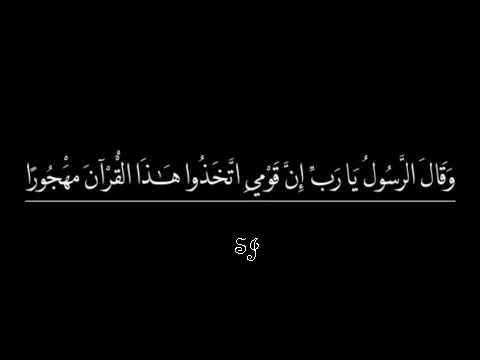 وَقَالَ الرَّسُولُ يَا رَبِّ إِنَّ قَوْمِي اتَّخَذُوا هَـٰذَا الْقُرْآنَ مَهْجُورًا
SJ